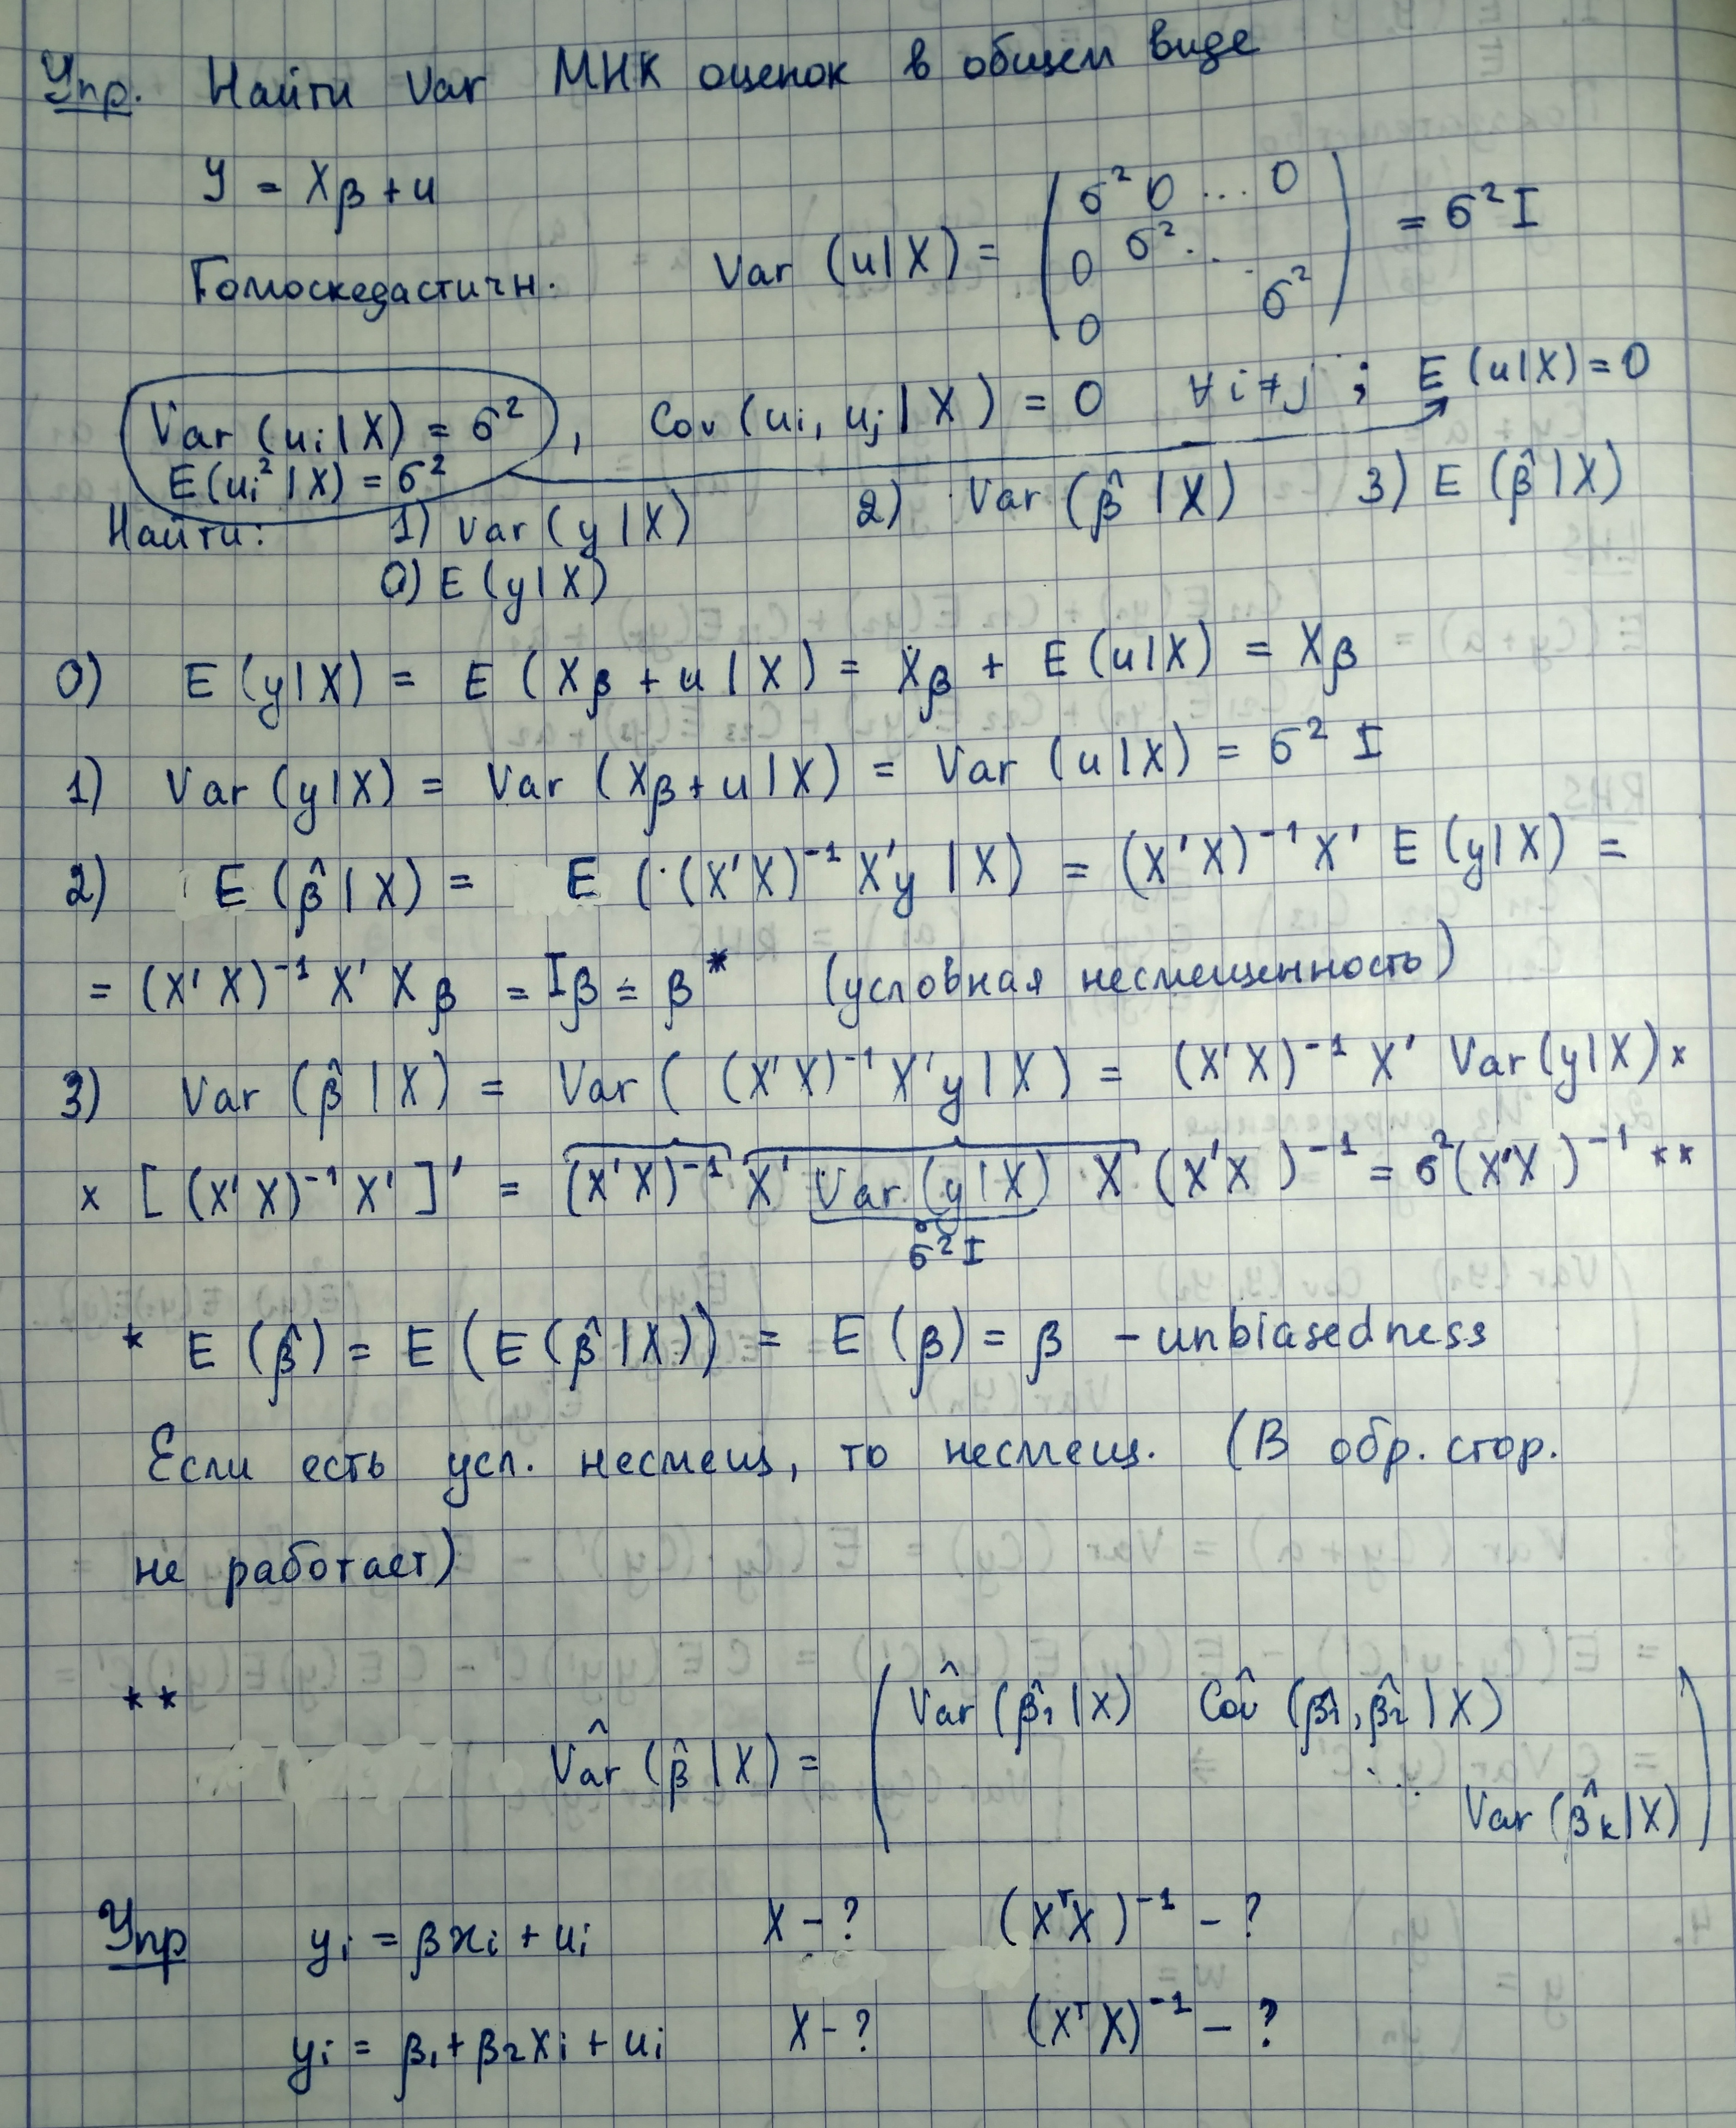 Упр. Найти Var МНК оценок в общем виде
y = Xβ + u
Гомоскедастичн. Var (u|X) = ( σ² 0 ... 0
0 σ² ..
. σ²
0 ) = σ² I
Var (ui | X) = σ² , Cov (ui, uj | X) = 0 ∀ i ≠ j ; E (u|X) = 0
E (ui² | X) = σ²
Найти: 1) Var (y | X) 2) Var (β̂ | X) 3) E (β̂ | X)
0) E (y | X)
0) E (y | X) = E (Xβ + u | X) = Xβ + E (u|X) = Xβ
1) Var (y | X) = Var (Xβ + u | X) = Var (u | X) = σ² I
2) E (β̂ | X) = E ((X'X)⁻¹ X'y | X) = (X'X)⁻¹ X' E (y | X) =
= (X'X)⁻¹ X' X β = Iβ = β * (условная несмещенность)
3) Var (β̂ | X) = Var ( (X'X)⁻¹ X'y | X ) = (X'X)⁻¹ X' Var (y | X) ×
× [ (X'X)⁻¹ X' ]' = (X'X)⁻¹ X' Var (y | X) X (X'X)⁻¹ = σ² (X'X)⁻¹ **
σ² I
* E (β̂) = E (E (β̂ | X)) = E (β) = β – unbiasedness
Если есть усл. несмещ, то несмещ. (В обр. стор.
не работает)
** Var̂ (β̂ | X) = ( Var̂ (β̂1 | X) Cov̂ (β̂1, β̂2 | X)
. . .
Var (β̂k | X) )
Упр yi = βxi + ui X – ? (XᵀX)⁻¹ – ?
yi = β1 + β2xi + ui X – ? (XᵀX)⁻¹ – ?